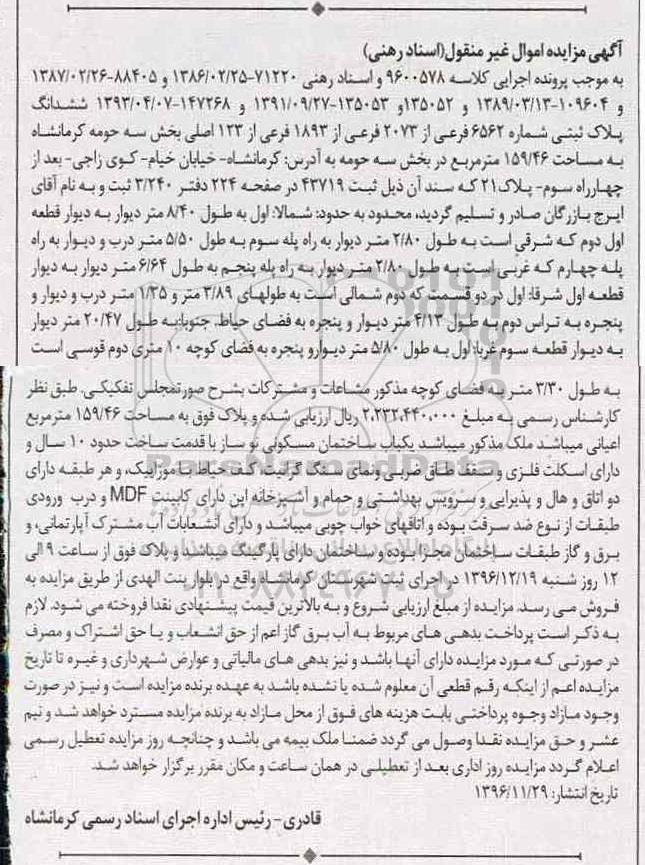 آگهی مزایده اموال غیر منقول(اسناد رهنی)
به موجب پرونده اجرایی کلاسه ۹۶۰۰۵۷۸ و اسناد رهنی ۷۱۲۲۰-۱۳۸۶/۰۲/۲۵ و ۸۸۴۰۵-۱۳۸۷/۰۲/۲۶
و ۱۰۹۶۰۴-۱۳۸۹/۰۳/۱۳ و ۱۳۵۰۵۲و ۱۳۵۰۵۳-۱۳۹۱/۰۹/۲۷ و ۱۴۷۲۶۸-۱۳۹۳/۰۴/۰۷ ششدانگ
پلاک ثبتی شماره ۶۵۶۲ فرعی از ۲۰۷۳ فرعی از ۱۸۹۳ فرعی از ۱۲۳ اصلی بخش سه حومه کرمانشاه
به مساحت ۱۵۹/۴۶ مترمربع در بخش سه حومه به آدرس: کرمانشاه- خیابان خیام- کوی زاجی- بعد از
چهارراه سوم- پلاک۲۱ که سند آن ذیل ثبت ۴۳۷۱۹ در صفحه ۲۲۴ دفتر ۳/۲۴۰ ثبت و به نام آقای
ایرج بازرگان صادر و تسلیم گردید، محدود به حدود: شمالا: اول به طول ۸/۴۰ متر دیوار به دیوار قطعه
اول دوم که شرقی است به طول ۲/۸۰ متر دیوار به راه پله سوم به طول ۵/۵۰ متر درب و دیوار به راه
پله چهارم که غربی است به طول ۲/۸۰ متر دیوار به راه پله پنجم به طول ۶/۶۴ متر دیوار به دیوار
قطعه اول شرقا: اول در دو قسمت که دوم شمالی است به طولهای ۳/۸۹ متر و ۱/۳۵ متر درب و دیوار و
پنجره به تراس دوم به طول ۴/۱۳ متر دیوار و پنجره به فضای حیاط. جنوبا:به طول ۲۰/۴۷ متر دیوار
به دیوار قطعه سوم غربا: اول به طول ۵/۸۰ متر دیوارو پنجره به فضای کوچه ۱۰ متری دوم قوسی است
به طول ۳/۳۰ متر به فضای کوچه مذکور مشاعات و مشترکات بشرح صورتمجلس تفکیکی. طبق نظر
کارشناس رسمی به مبلغ ۲,۲۳۲,۴۴۰,۰۰۰ ریال ارزیابی شده و پلاک فوق به مساحت ۱۵۹/۴۶ مترمربع
اعیانی میباشد ملک مذکور میباشد یکباب ساختمان مسکونی نو ساز با قدمت ساخت حدود ۱۰ سال و
دارای اسکلت فلزی و سقف طاق ضربی ونمای سنگ گرانیت کف حیاط با موزاییک، و هر طبقه دارای
دو اتاق و هال و پذیرایی و سرویس بهداشتی و حمام و آشپزخانه اپن دارای کابینت MDF و درب ورودی
طبقات از نوع ضد سرقت بوده و اتاقهای خواب چوبی میباشد و دارای انشعابات آب مشترک آپارتمانی، و
برق و گاز طبقات ساختمان مجزا بوده و ساختمان دارای پارکینگ میباشد و پلاک فوق از ساعت ۹ الی
۱۲ روز شنبه ۱۳۹۶/۱۲/۱۹ در اجرای ثبت شهرستان کرمانشاه واقع در بلوار بنت الهدی از طریق مزایده به
فروش می رسد. مزایده از مبلغ ارزیابی شروع و به بالاترین قیمت پیشنهادی نقدا فروخته می شود. لازم
به ذکر است پرداخت بدهی های مربوط به آب برق گاز اعم از حق انشعاب و یا حق اشتراک و مصرف
در صورتی که مورد مزایده دارای آنها باشد و نیز بدهی های مالیاتی و عوارض شهرداری و غیره تا تاریخ
مزایده اعم از اینکه رقم قطعی آن معلوم شده یا نشده باشد به عهده برنده مزایده است و نیز در صورت
وجود مازاد وجوه پرداختی بابت هزینه های فوق از محل مازاد به برنده مزایده مسترد خواهد شد و نیم
عشر و حق مزایده نقدا وصول می گردد ضمنا ملک بیمه می باشد و چنانچه روز مزایده تعطیل رسمی
اعلام گردد مزایده روز اداری بعد از تعطیلی در همان ساعت و مکان مقرر برگزار خواهد شد.
تاریخ انتشار: ۱۳۹۶/۱۱/۲۹
قادری- رئیس اداره اجرای اسناد رسمی کرمانشاه